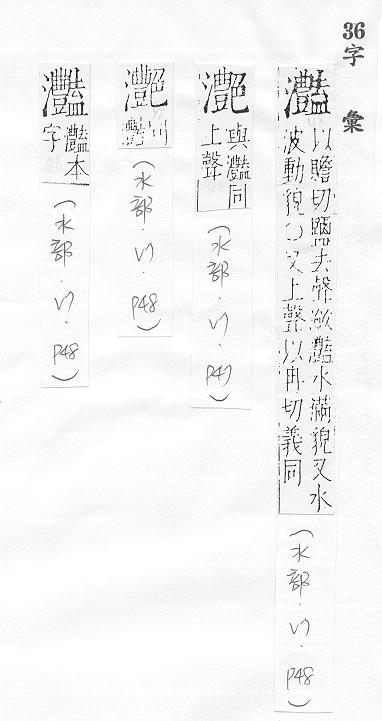 36字彙
灩以贍切鹽去聲瀲灩水滿貌又水
波動貌○又上聲以冉切義同
(水部. .P48)
灔與灩同
上聲
(水部. .P47)
灧同
(水部. .P48)
灩灩本
字
(水部. .P48)